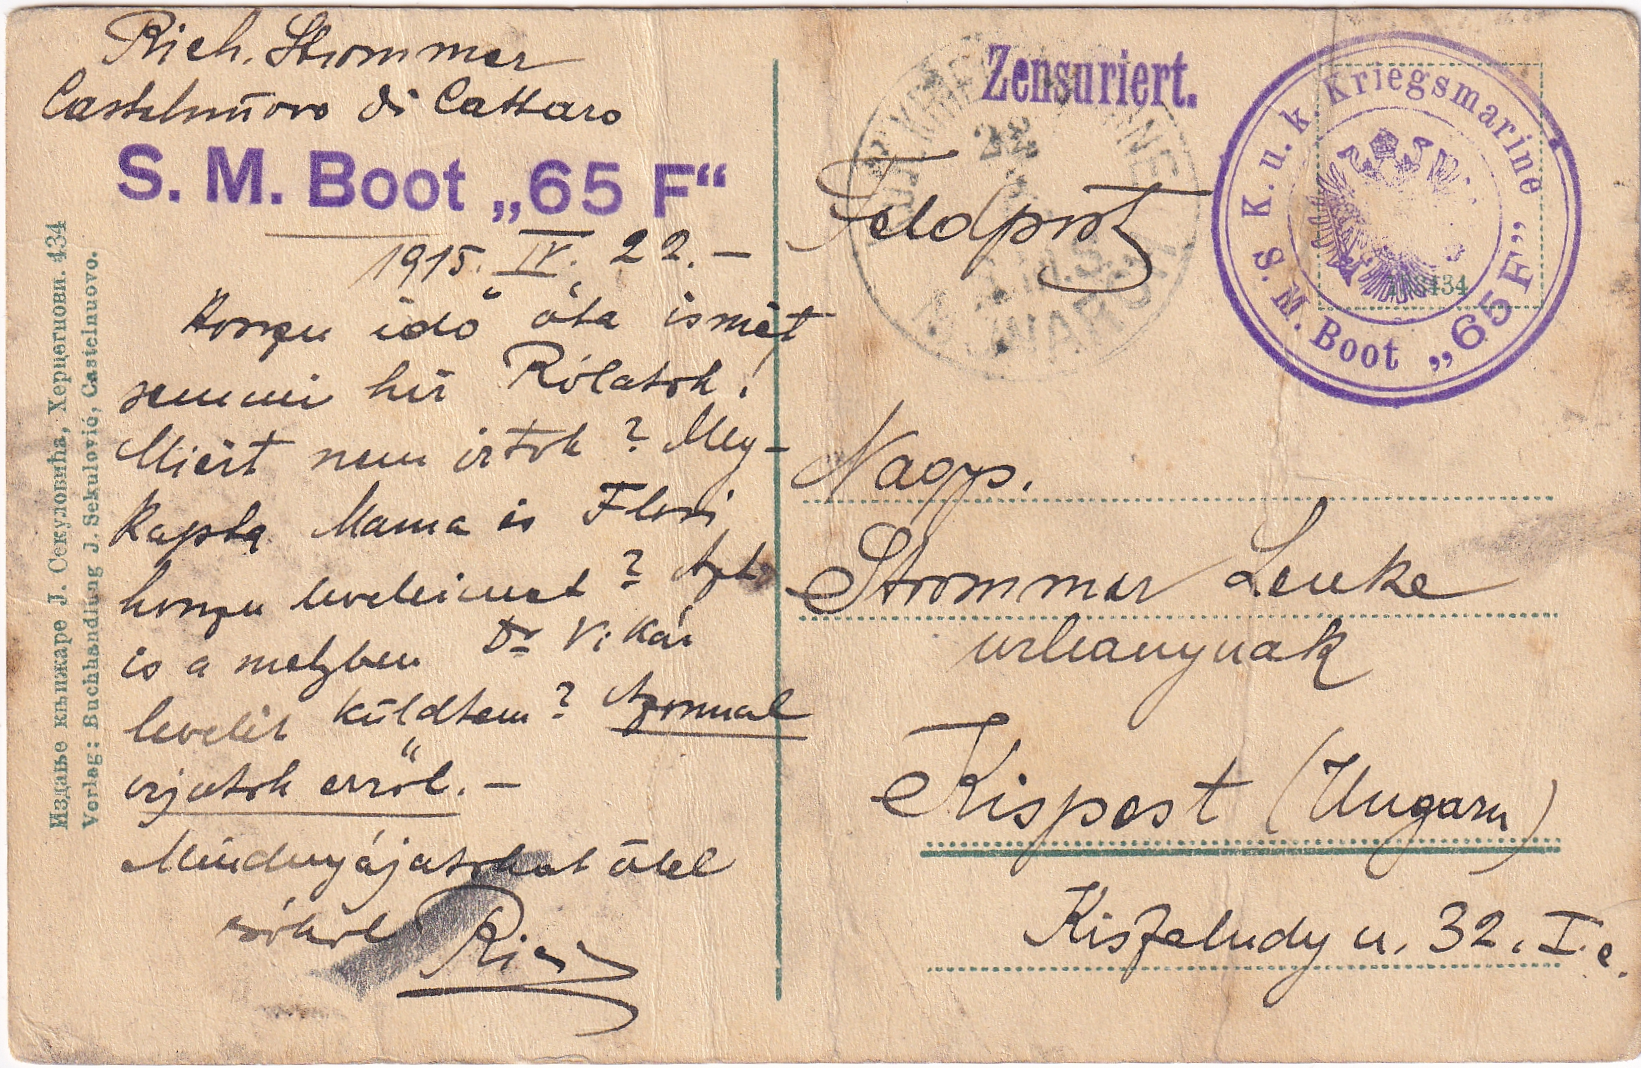 Rich. Strommer
Castelnuovo di Cattaro
S. M. Boot „65 F“
1915. IV. 22. –
Hosszu idő óta ismét
semmi hir Rólatok!
Miért nem irtok? Meg-
kapta Mama és Flóri
hosszu leveleimet? Azt
is a melyben Dr Vikár
levelét küldtem? Azonnal
irjatok erről. –
Mindnyájatokat ölel
csókol
Rici
Издање књижаре Ј. Секуловића, Херцегнови. 434
Verlag: Buchhandlung J. Sekulović, Castelnuovo.
Zensuriert.
K. u. k. Kriegsmarine
S. M. Boot „65 F”
434
22
S.M.S.
Feldpost
Nagys.
Strommer Lenke
urleanynak
Kispest (Ungarn)
Kisfaludy u. 32. I. e.